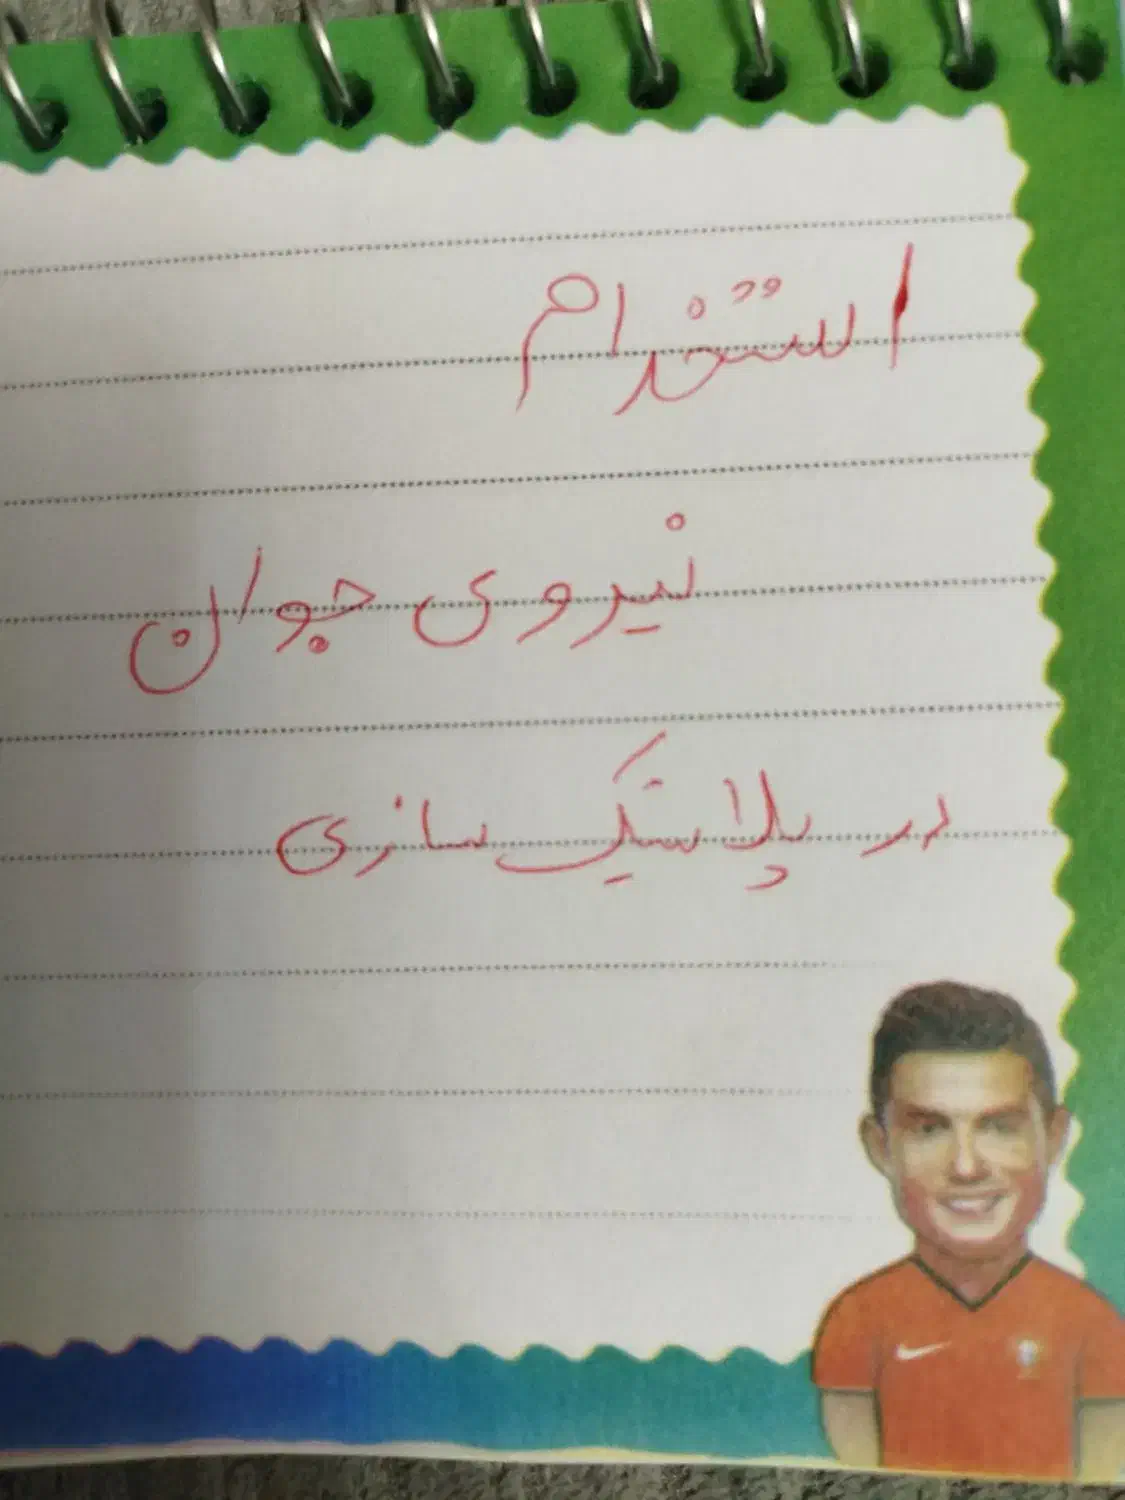 استخدام
نیروی جوان
در پلاستیک سازی